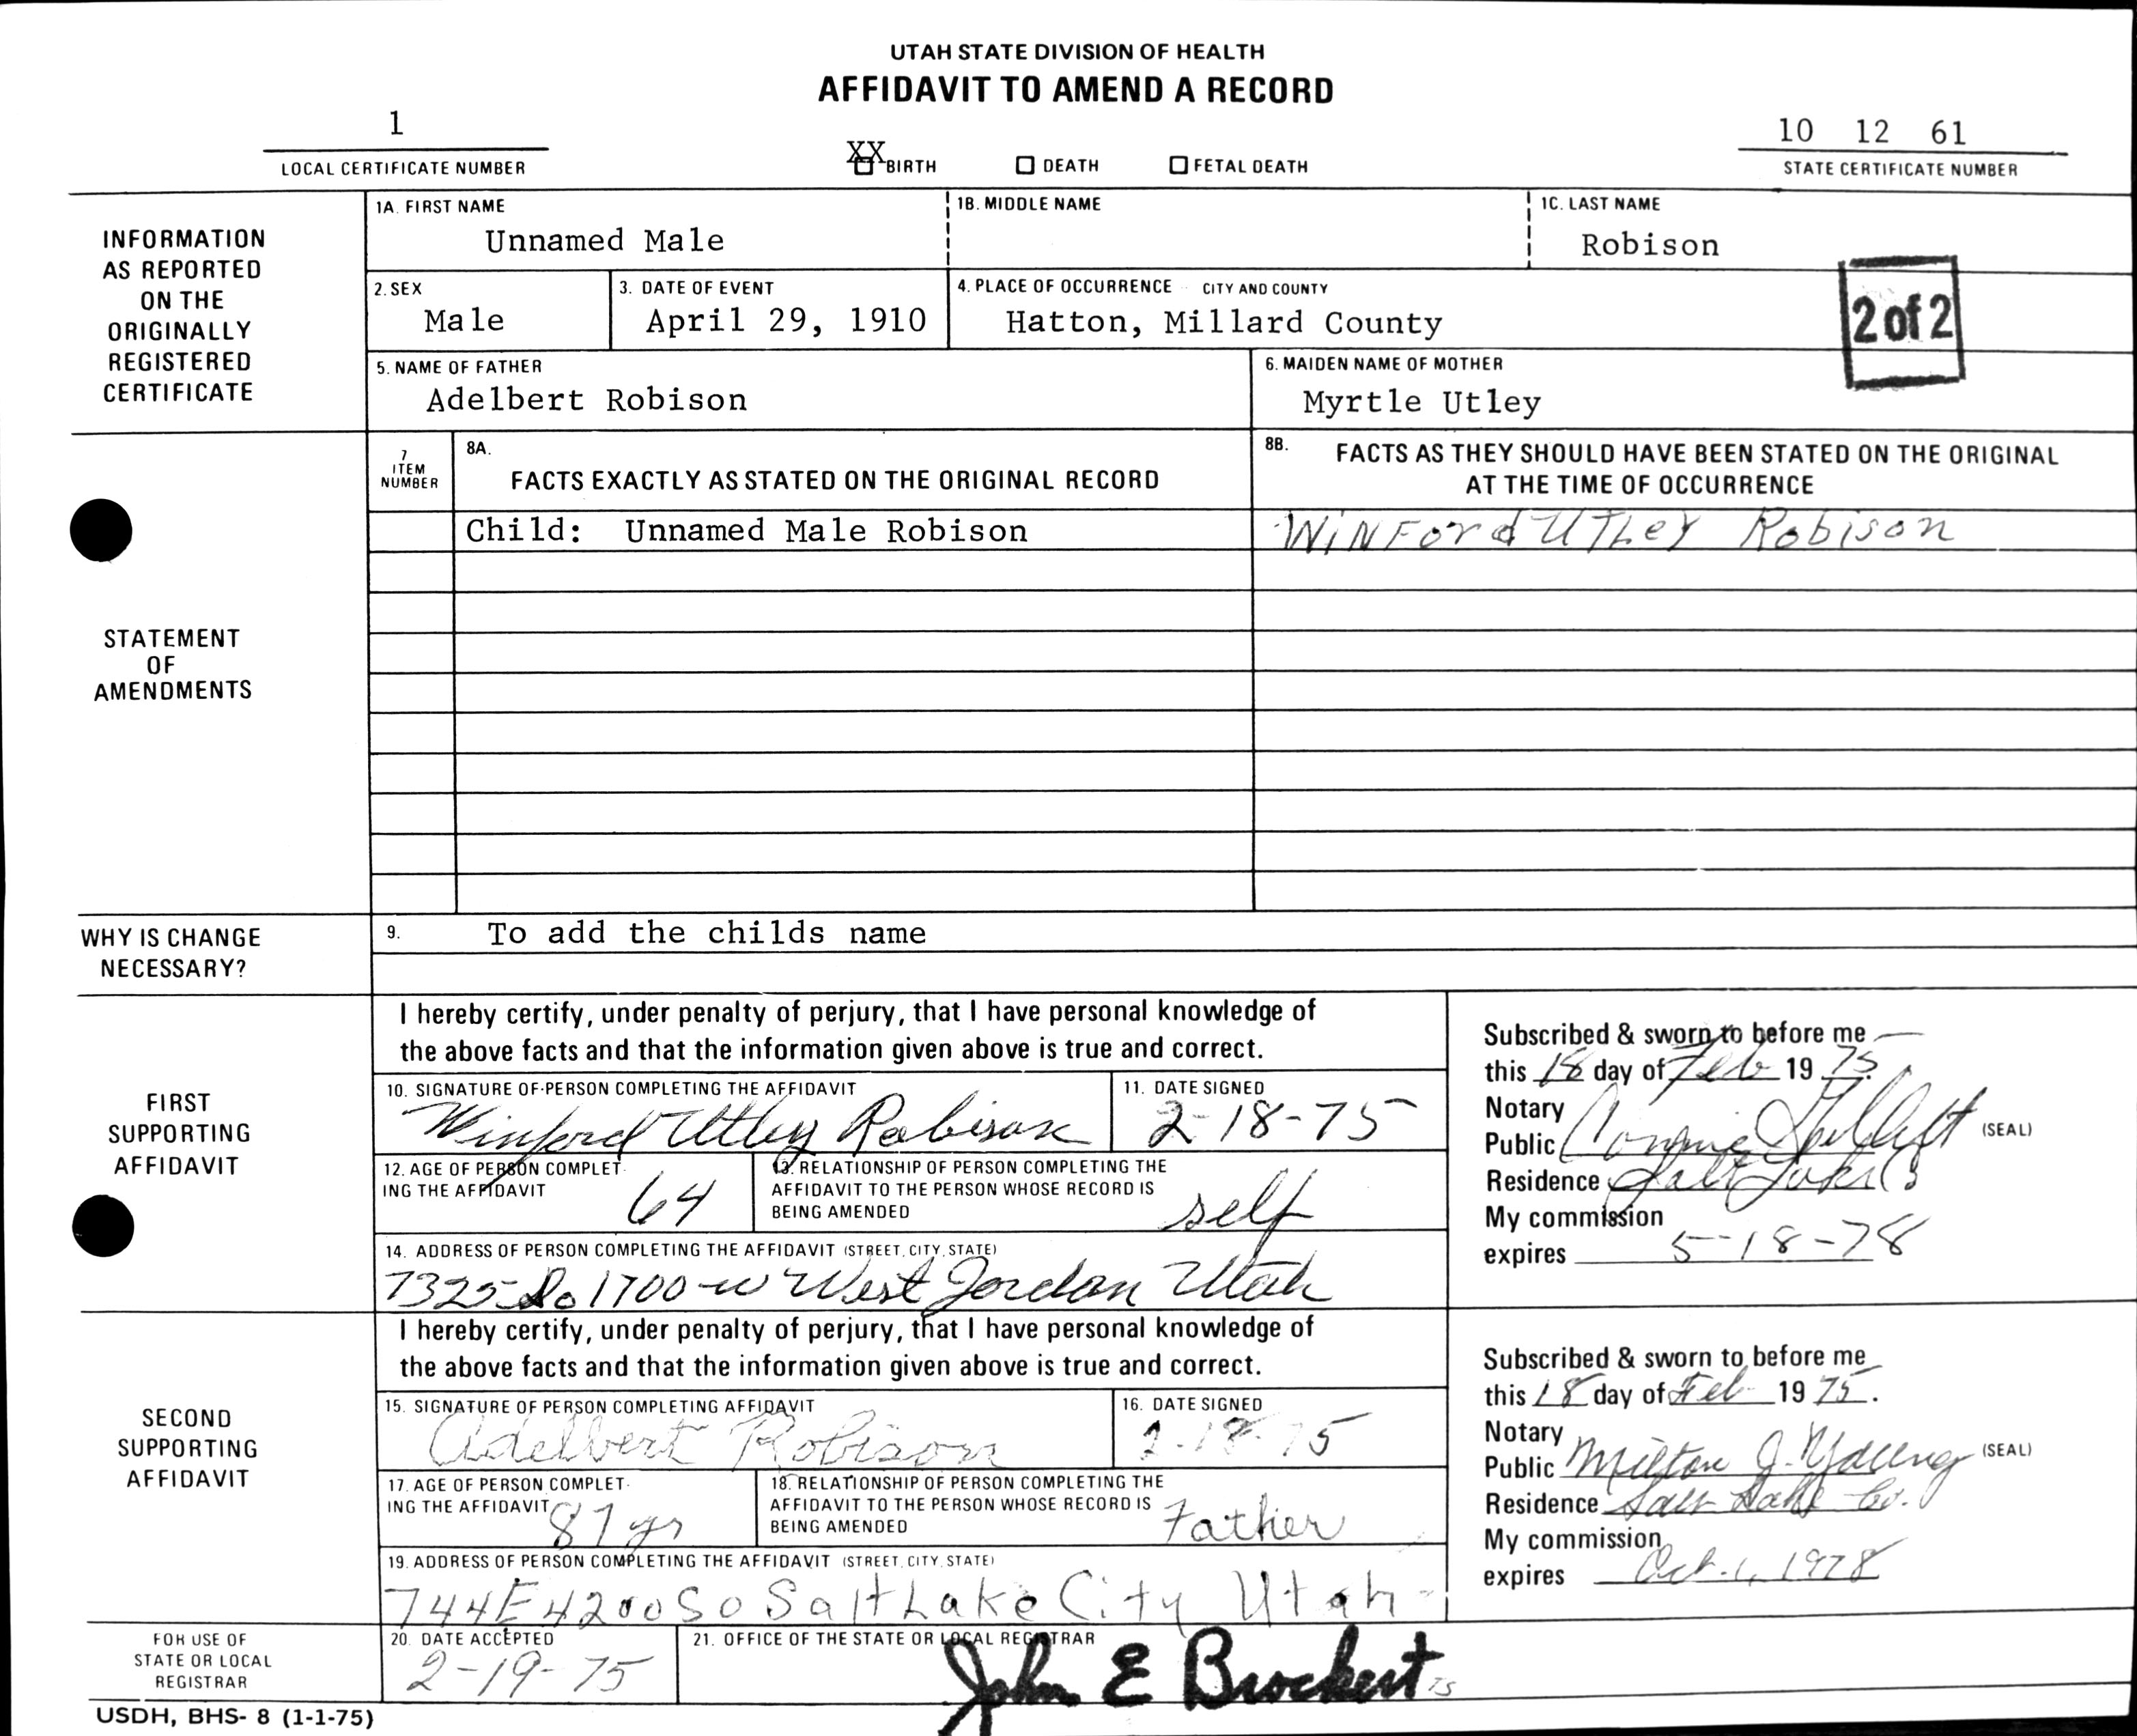 UTAH STATE DIVISION OF HEALTH
AFFIDAVIT TO AMEND A RECORD
1
LOCAL CERTIFICATE NUMBER
XX BIRTH DEATH FETAL DEATH
10 12 61
STATE CERTIFICATE NUMBER
INFORMATION
AS REPORTED
ON THE
ORIGINALLY
REGISTERED
CERTIFICATE
1A. FIRST NAME
Unnamed Male
1B. MIDDLE NAME
1C. LAST NAME
Robison
2. SEX
Male
3. DATE OF EVENT
April 29, 1910
4. PLACE OF OCCURRENCE CITY AND COUNTY
Hatton, Millard County
2 of 2
5. NAME OF FATHER
Adelbert Robison
6. MAIDEN NAME OF MOTHER
Myrtle Utley
STATEMENT
OF
AMENDMENTS
7
ITEM
NUMBER
8A.
FACTS EXACTLY AS STATED ON THE ORIGINAL RECORD
8B. FACTS AS THEY SHOULD HAVE BEEN STATED ON THE ORIGINAL
AT THE TIME OF OCCURRENCE
Child: Unnamed Male Robison
WINFord UTLeY Robison
WHY IS CHANGE
NECESSARY?
9. To add the childs name
FIRST
SUPPORTING
AFFIDAVIT
I hereby certify, under penalty of perjury, that I have personal knowledge of
the above facts and that the information given above is true and correct.
10. SIGNATURE OF PERSON COMPLETING THE AFFIDAVIT
Winford Utley Robison
11. DATE SIGNED
2-18-75
12. AGE OF PERSON COMPLET-
ING THE AFFIDAVIT
64
13. RELATIONSHIP OF PERSON COMPLETING THE
AFFIDAVIT TO THE PERSON WHOSE RECORD IS
BEING AMENDED
self
14. ADDRESS OF PERSON COMPLETING THE AFFIDAVIT (STREET, CITY, STATE)
7325 So 1700 W West Jordan Utah
Subscribed & sworn to before me
this 18 day of Feb 19 75.
Notary
Public Connie
(SEAL)
Residence Salt Lake
My commission
expires 5-18-78
SECOND
SUPPORTING
AFFIDAVIT
I hereby certify, under penalty of perjury, that I have personal knowledge of
the above facts and that the information given above is true and correct.
15. SIGNATURE OF PERSON COMPLETING AFFIDAVIT
Adelbert Robison
16. DATE SIGNED
2-18-75
17. AGE OF PERSON COMPLET-
ING THE AFFIDAVIT
87 yr
18. RELATIONSHIP OF PERSON COMPLETING THE
AFFIDAVIT TO THE PERSON WHOSE RECORD IS
BEING AMENDED
Father
19. ADDRESS OF PERSON COMPLETING THE AFFIDAVIT (STREET, CITY, STATE)
744 E 4200 So Salt Lake City Utah
Subscribed & sworn to before me
this 18 day of Feb 19 75.
Notary
Public Milton J. Young
(SEAL)
Residence Salt Lake Co.
My commission
expires Oct. 1, 1978
FOR USE OF
STATE OR LOCAL
REGISTRAR
20. DATE ACCEPTED
2-19-75
21. OFFICE OF THE STATE OR LOCAL REGISTRAR
John E Brockert
USDH, BHS- 8 (1-1-75)